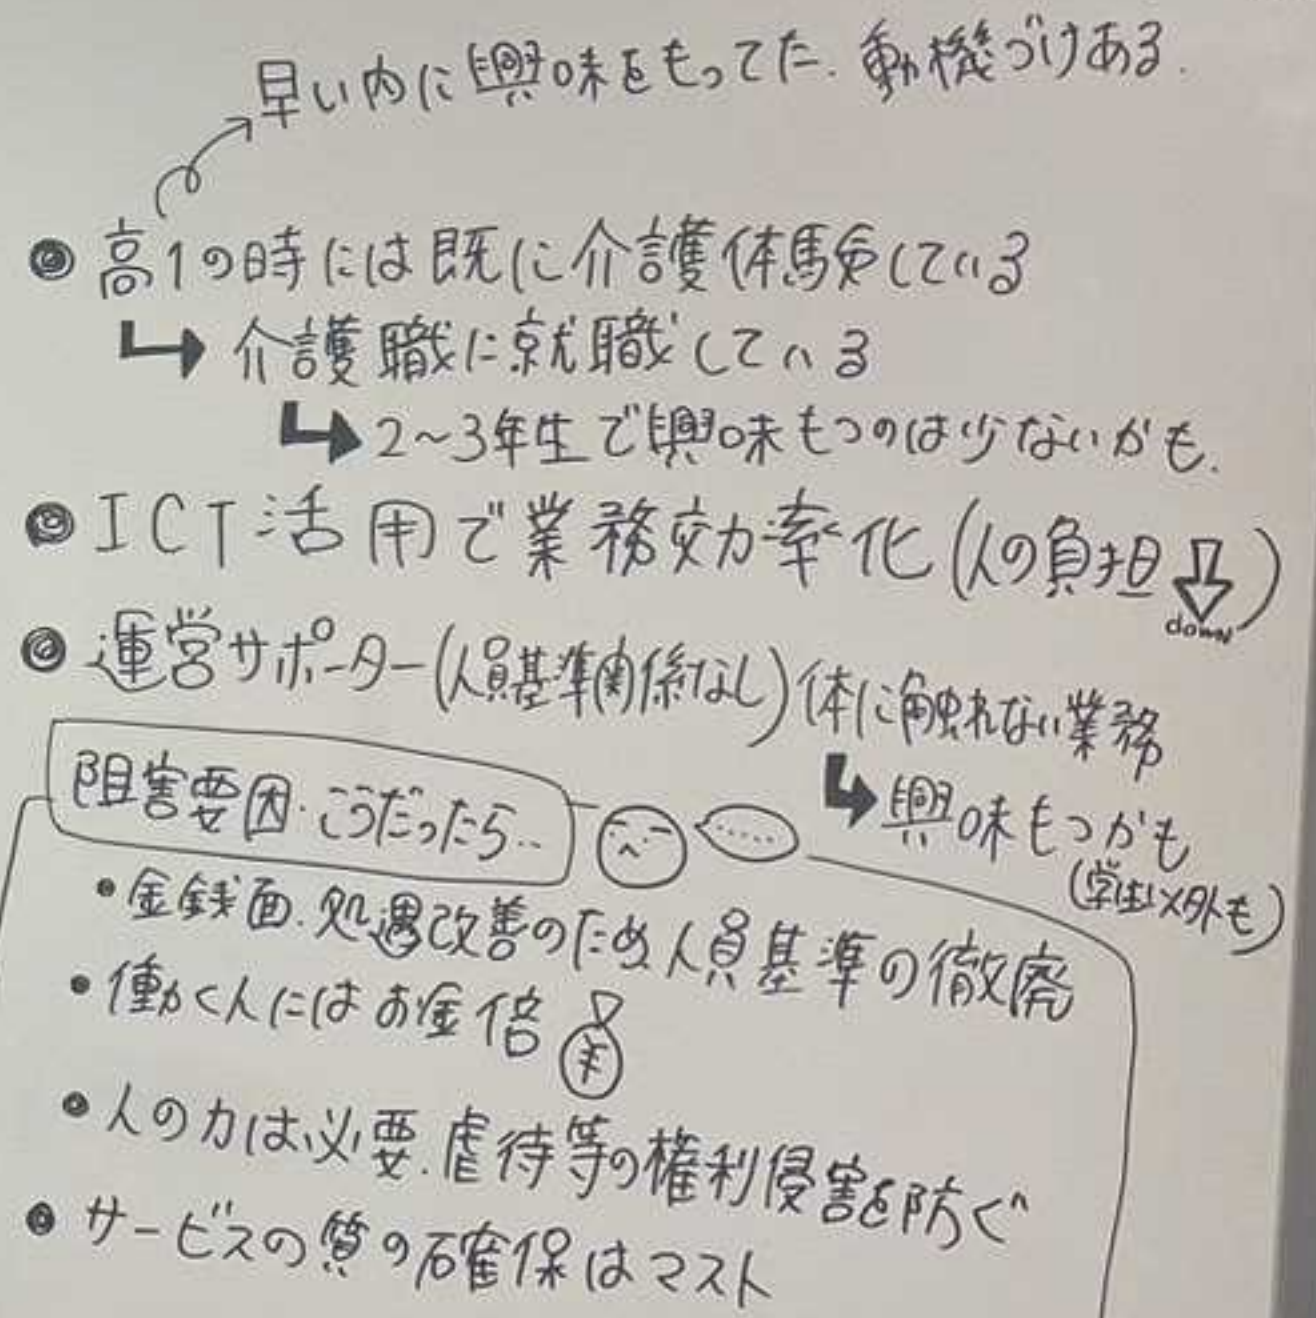 早い内に興味をもってた.動機づけある.
高1の時には既に介護体験している
介護職に就職している
2〜3年生で興味もつのは少ないかも.
ICT活用で業務効率化(人の負担
down
)
運営サポーター(人員基準関係なし)体に触れない業務
興味もつかも
(学生以外も)
阻害要因.こうだったら..
......
・金銭面.処遇改善のため人員基準の徹廃
・働く人にはお金倍
¥
・人の力は必要.虐待等の権利侵害を防ぐ
・サービスの質の確保はマスト